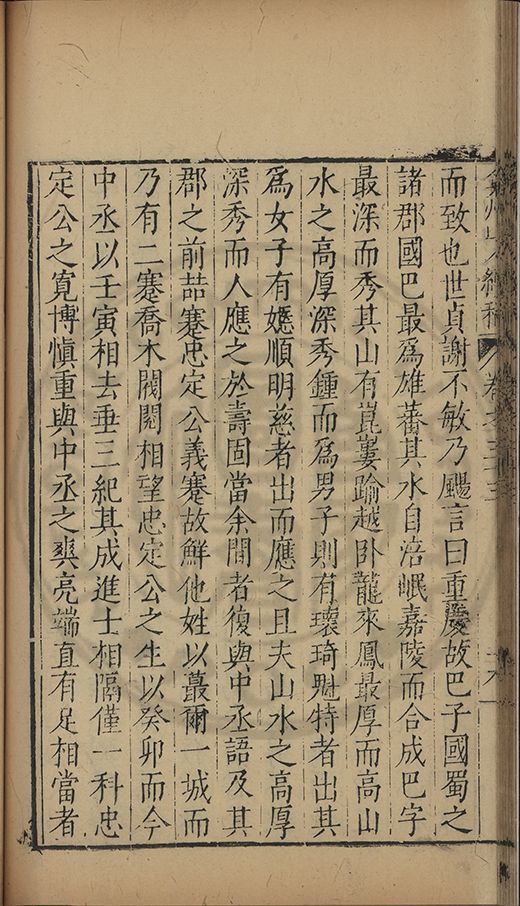 州山人續稿 卷之三十三
而致也世貞謝不敏乃颺言曰重慶故巴子國蜀之
諸郡國巴最爲雄蕃其水自涪岷嘉陵而合成巴字
最深而秀其山有踰越卧龍來鳳最厚而高山
水之高厚深秀鍾而爲男子則有瓌琦魁特者出其
爲女子有嫕順明慈者出而應之且夫山水之高厚
深秀而人應之於壽固當余間者復與中丞語及其
郡之前喆蹇忠定公義蹇故鮮他姓以蕞爾一城而
乃有二蹇喬木閥閱相望忠定公之生以癸卯而今
中丞以壬寅相去垂三紀其成進士相隔僅一科忠
定公之寬博愼重與中丞之爽亮端直有足相當者